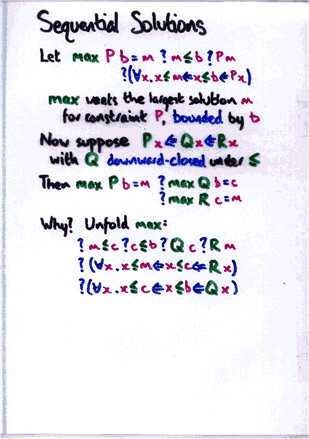 Sequential Solutions
Let max P b = m ? m ≤ b ? P m
? (∀x. x ≤ m ⇐ x ≤ b ⇐ P x)
max wants the largest solution m
for constraint P, bounded by b
Now suppose P x ⇐ Q x ⇐ R x
with Q downward-closed under ≤
Then max P b = m ? max Q b = c
? max R c = m
Why? Unfold max:
? m ≤ c ? c ≤ b ? Q c ? R m
? (∀x. x ≤ m ⇐ x ≤ c ⇐ R x)
? (∀x. x ≤ c ⇐ x ≤ b ⇐ Q x)